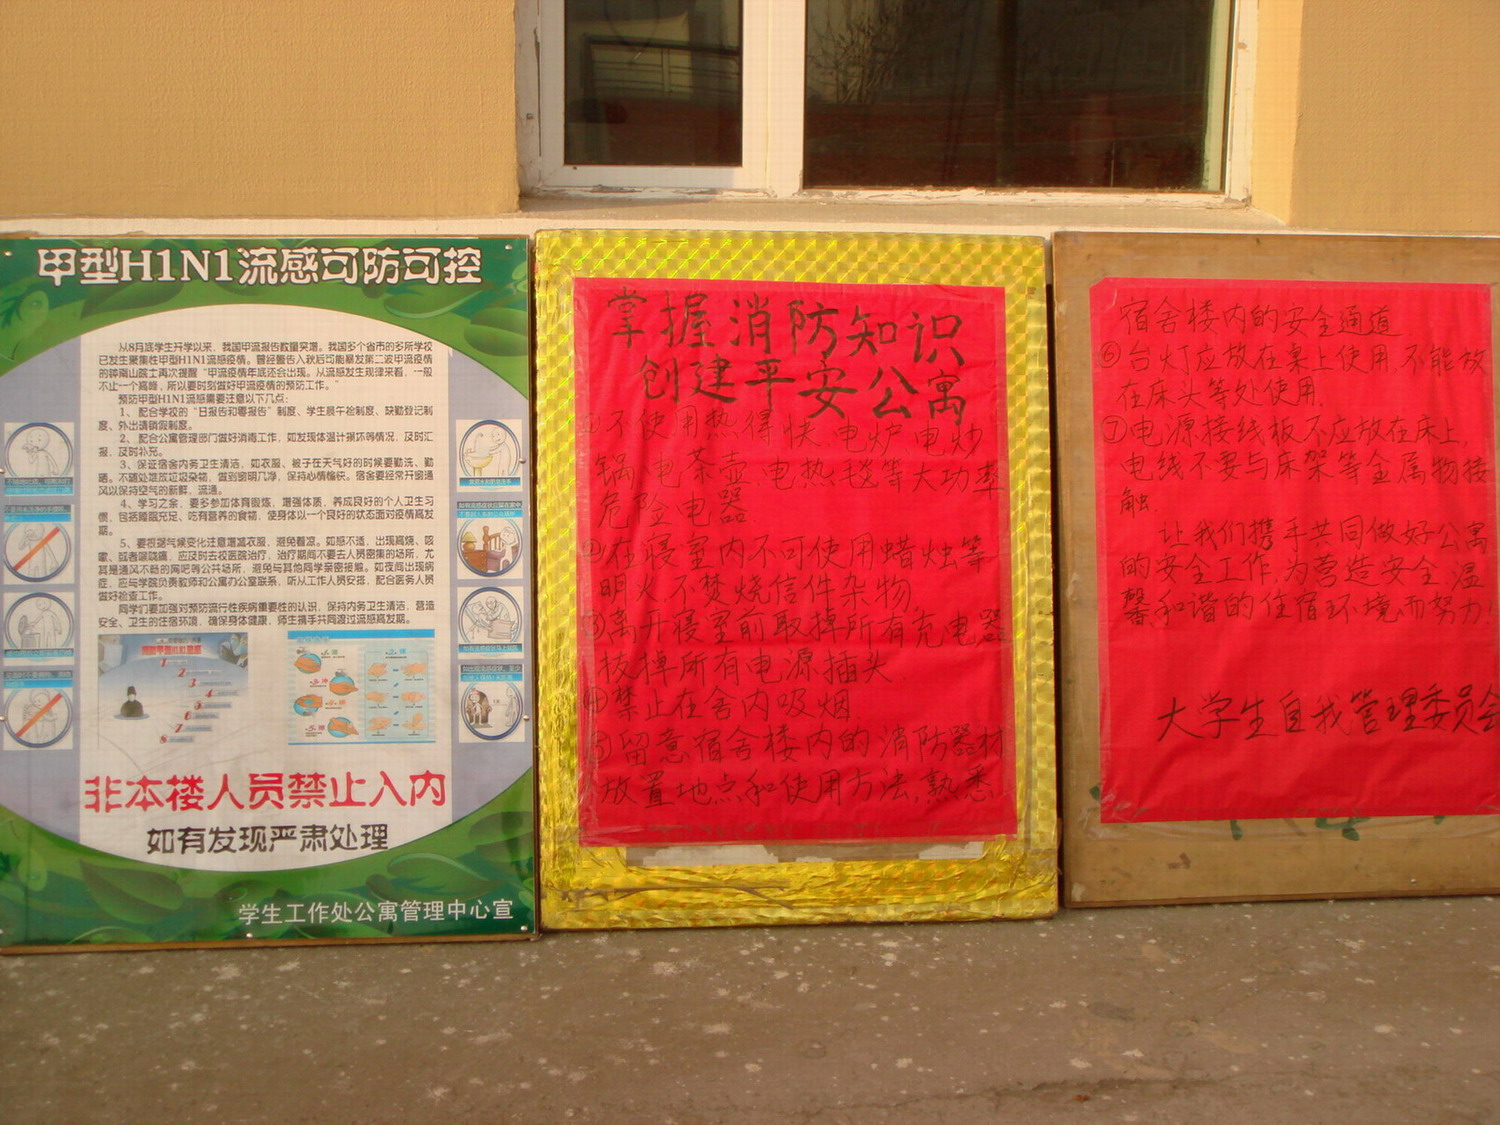 甲型H1N1流感可防可控
从8月底学生开学以来，我国甲流报告数量突增。我国多个省市的多所学校
已发生聚集性甲型H1N1流感疫情。曾经警告入秋后可能暴发第二波甲流疫情
的钟南山院士再次提醒“甲流疫情年底还会出现。从流感发生规律来看，一般
不止一个高峰，所以要时刻做好甲流疫情的预防工作。”
预防甲型H1N1流感需要注意以下几点：
1、配合学校的“日报告和零报告”制度、学生晨午检制度、缺勤登记制
度、外出请销假制度。
2、配合公寓管理部门做好消毒工作，如发现体温计损坏等情况，及时汇
报，及时补充。
3、保证宿舍内务卫生清洁，如衣服、被子在天气好的时候要勤洗、勤
晒。不随处堆放垃圾杂物，做到窗明几净，保持心情愉快。宿舍要经常开窗通
风以保持空气的新鲜，流通。
4、学习之余，要多参加体育锻炼，增强体质，养成良好的个人卫生习
惯，包括睡眠充足、吃有营养的食物，使身体以一个良好的状态面对疫情高发
期。
5、要根据气候变化注意增减衣服，避免着凉。如感不适，出现高烧、咳
嗽、或者喉咙痛，应及时去校医院治疗，治疗期间不要去人员密集的场所，尤
其是通风不畅的网吧等公共场所，避免与其他同学亲密接触。如夜间出现病
症，应与学院负责教师和公寓办公室联系，听从工作人员安排，配合医务人员
做好检查工作。
同学们要加强对预防流行性疾病重要性的认识，保持内务卫生清洁，营造
安全、卫生的住宿环境，确保身体健康，师生携手共同渡过流感高发期。
非本楼人员禁止入内
如有发现严肃处理
学生工作处公寓管理中心宣
掌握消防知识
创建平安公寓
①不使用热得快、电炉、电炒
锅、电茶壶、电热毯等大功率
危险电器.
②在寝室内不可使用蜡烛等
明火,不焚烧信件杂物.
③离开寝室前取掉所有充电器
拔掉所有电源插头.
④禁止在舍内吸烟.
⑤留意宿舍楼内的消防器材
放置地点和使用方法,熟悉
宿舍楼内的安全通道
⑥台灯应放在桌上使用,不能放
在床头等处使用.
⑦电源接线板不应放在床上,
电线不要与床架等金属物接
触.
让我们携手共同做好公寓
的安全工作,为营造安全、温
馨、和谐的住宿环境而努力!
大学生自我管理委员会